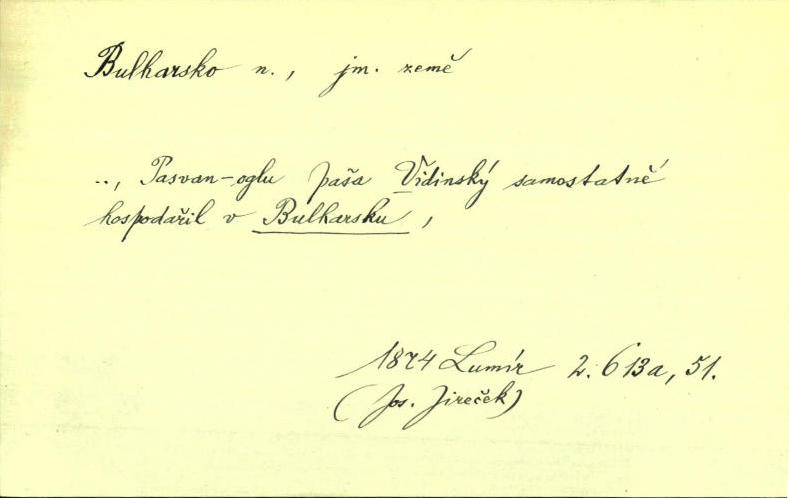 Bulharsko n., jm. země
.., Pasvan-oglu paša Vidinský samostatně
hospodařil v Bulharsku,
1874 Lumír 2. 613a, 51.
(Jos. Jireček)